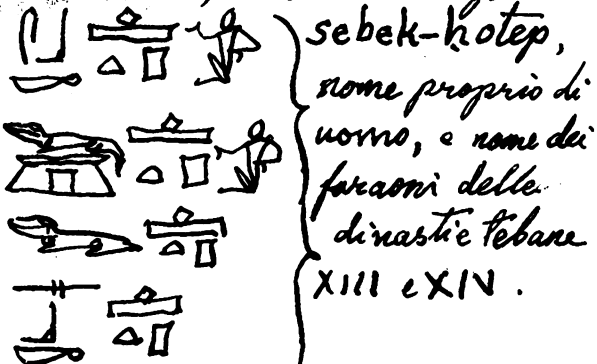 sebek-ḥotep,
nome proprio di
uomo, e nome dei
faraoni delle
dinastie Tebane
XIII e XIV.